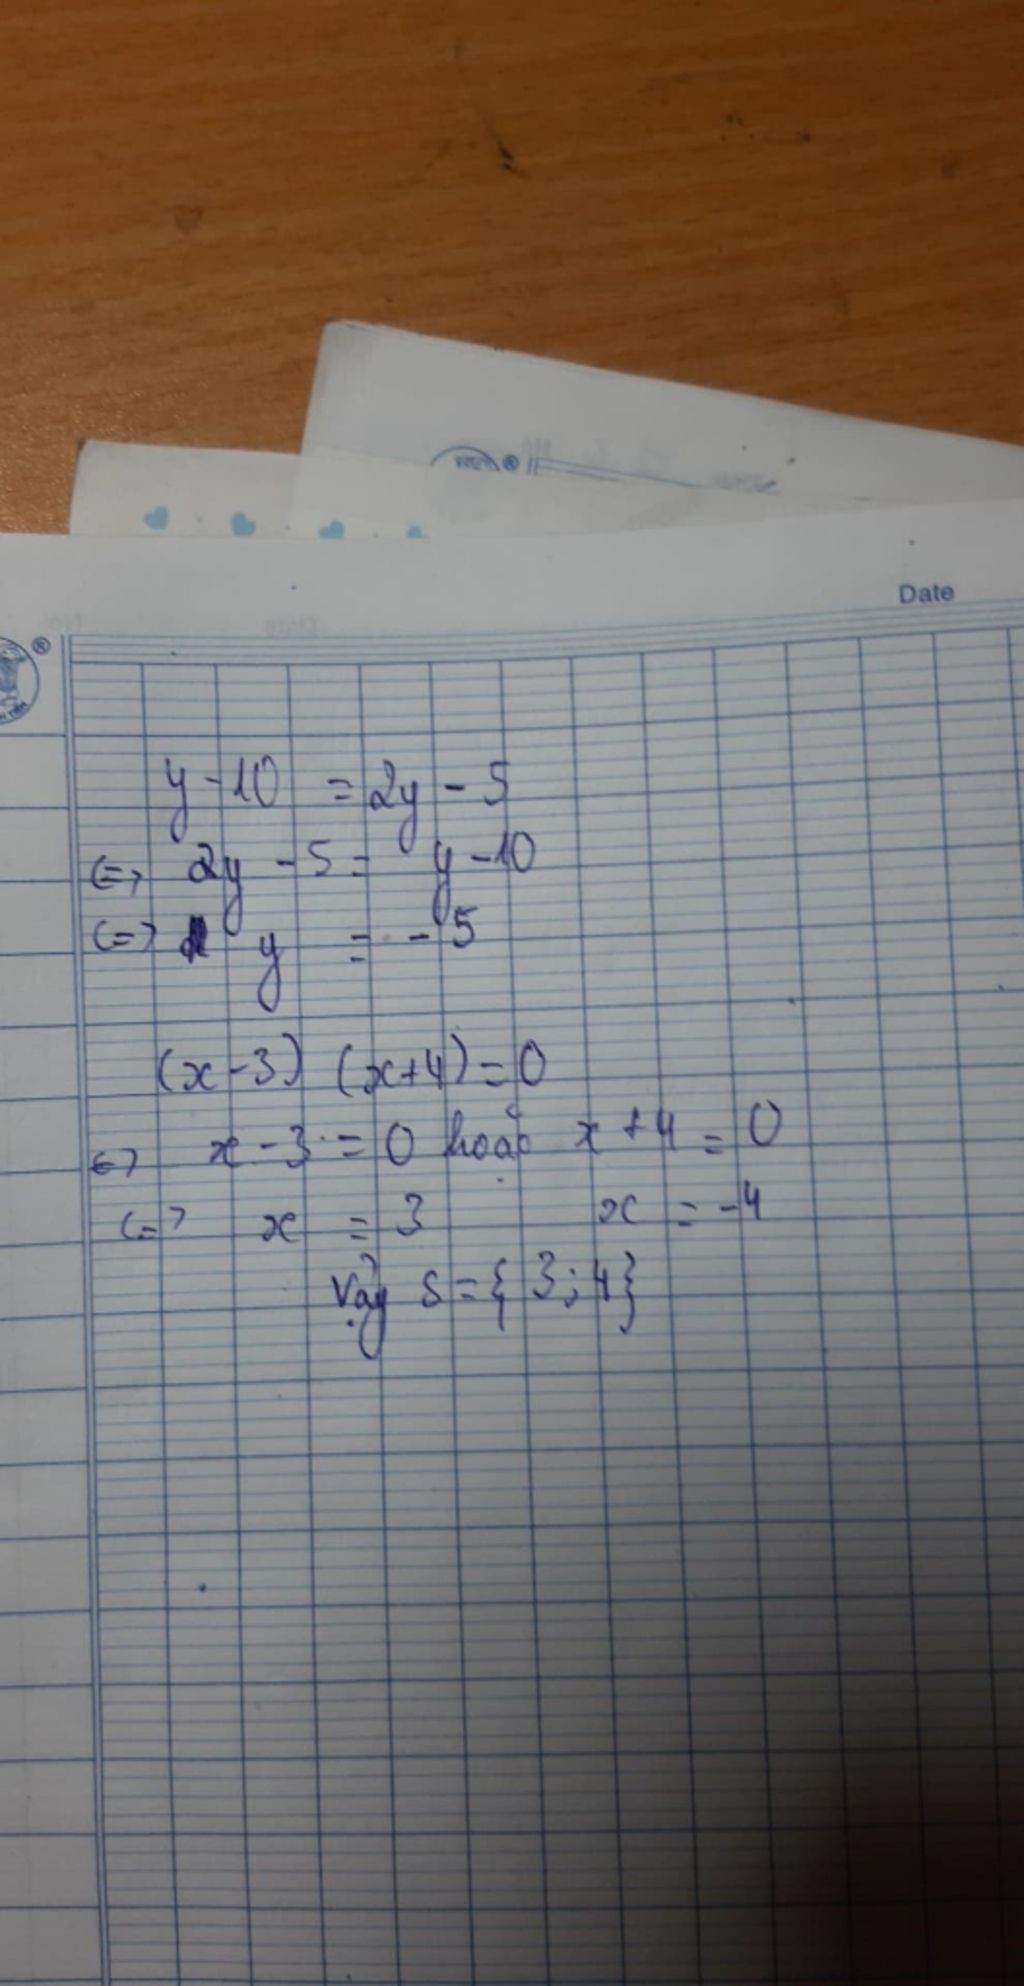 Date
y - 10 = 2y - 5
<=> 2y - 5 = y - 10
<=> y = - 5
(x - 3) (x + 4) = 0
<=> x - 3 = 0 hoặc x + 4 = 0
<=> x = 3 x = -4
Vậy S = { 3 ; 4 }